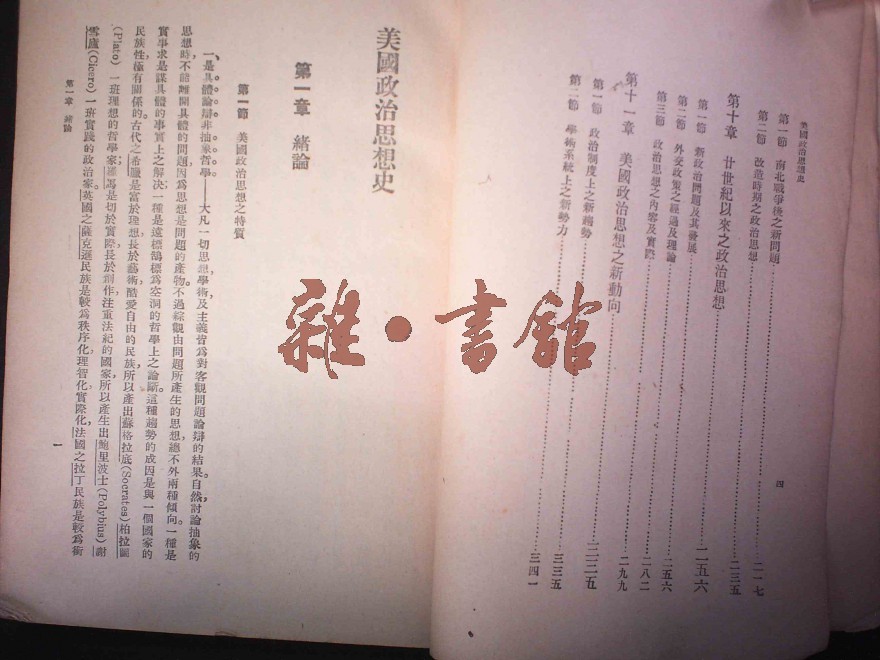 美國政治思想史
四
第一節 南北戰爭後之新問題……二一七
第二節 改造時期之政治思想……二三五
第十章 廿世紀以來之政治思想……二五六
第一節 新政治問題及其發展……二五六
第二節 外交政策之經過及理論……二八二
第三節 政治思想之內容及實際……二九九
第十一章 美國政治思想之新動向……三二五
第一節 政治制度上之新趨勢……三三五
第二節 學術系統上之新勢力……三四一
美國政治思想史
第一章 緒論
第一節 美國政治思想之特質
一、是具體論辯非抽象哲學——大凡一切思想,學術及主義皆為對客觀問題論辯的結果。自然討論抽象的
思想時,不能離開具體的問題,因為思想是問題的產物。不過綜觀由問題所產生的思想,總不外兩種傾向。一種是
實事求是謀具體的事實上之解決;一種是遠標鵠標為空洞的哲學上之論斷。這種趨勢的成因是與一個國家的
民族性極有關係的。古代之希臘是富於理想,長於藝術,酷愛自由的民族,所以產出蘇格拉底(Socrates)柏拉圖
(Plato)一班理想的哲學家;羅馬是切於實際,長於創作,注重法紀的國家,所以產生出鮑里波士(Polybius)謝
雪廬(Cicero)一班實踐的政治家。英國之薩克遜民族是較為秩序化,理智化,實際化,法國之拉丁民族是較為衝
第一章 緒論
一
雜·書館